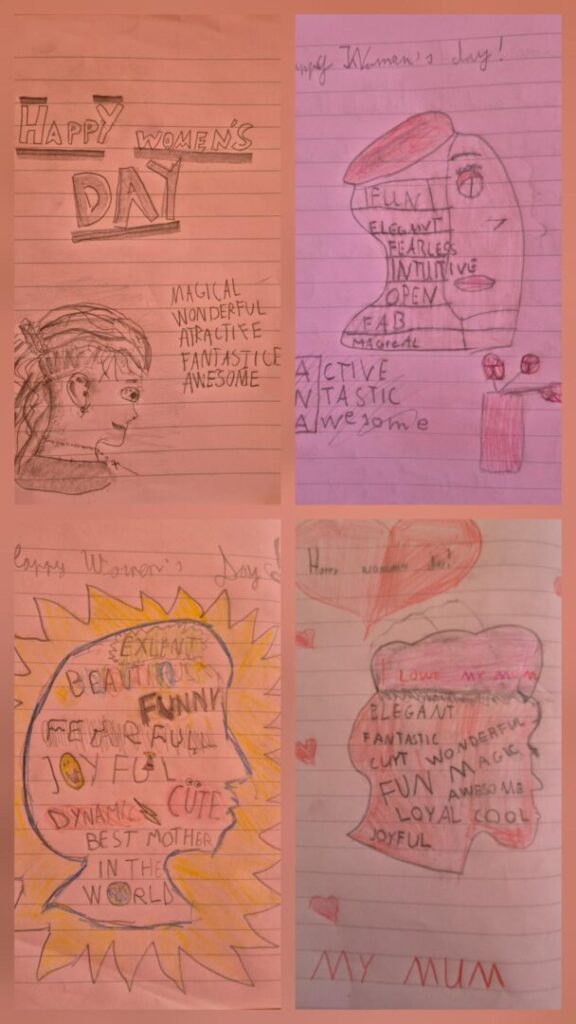 HAPPY WOMEN'S
DAY
MAGICAL
WONDERFUL
ATRACTIFE
FANTASTICE
AWESOME
appy Women's day!
FUN
ELEGANT
FEARLESS
INTUITIVE
OPEN
FAB
MAGICAL
ACTIVE
NTASTIC
Awesome
Happy Women's Day!
EXLENT
BEAUTIFUL
FUNNY
FEARFULL
JOYFUL
DYNAMIC
CÜTE
BEST MOTHER
IN THE
WORLD
Happy womans day!
I LOWE MY MUM
ELEGANT
FANTASTIC
WONDERFUL
FUN MAGIC
AWESOME
LOYAL COOL
JOYFUL
MY MUM